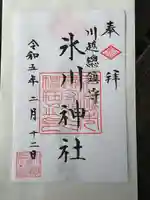 奉拝
川越總鎮守
氷川神社
令和五年二月十二日